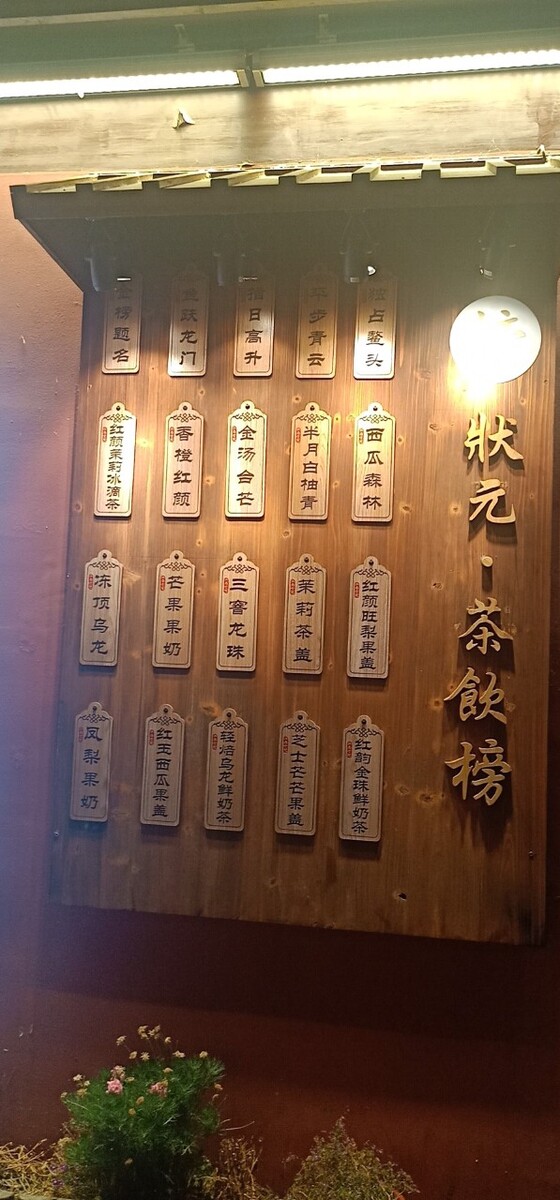 狀元·茶飲榜
独占鳌头
平步青云
指日高升
鱼跃龙门
金榜题名
西瓜森林
半月白柚青
金汤台芒
香橙红颜
红颜茉莉冰滴茶
红颜旺梨果盖
茉莉茶盖
三窨龙珠
芒果果奶
冻顶乌龙
红韵金珠鲜奶茶
芝士芒芒果盖
轻焙乌龙鲜奶茶
红玉西瓜果盖
凤梨果奶